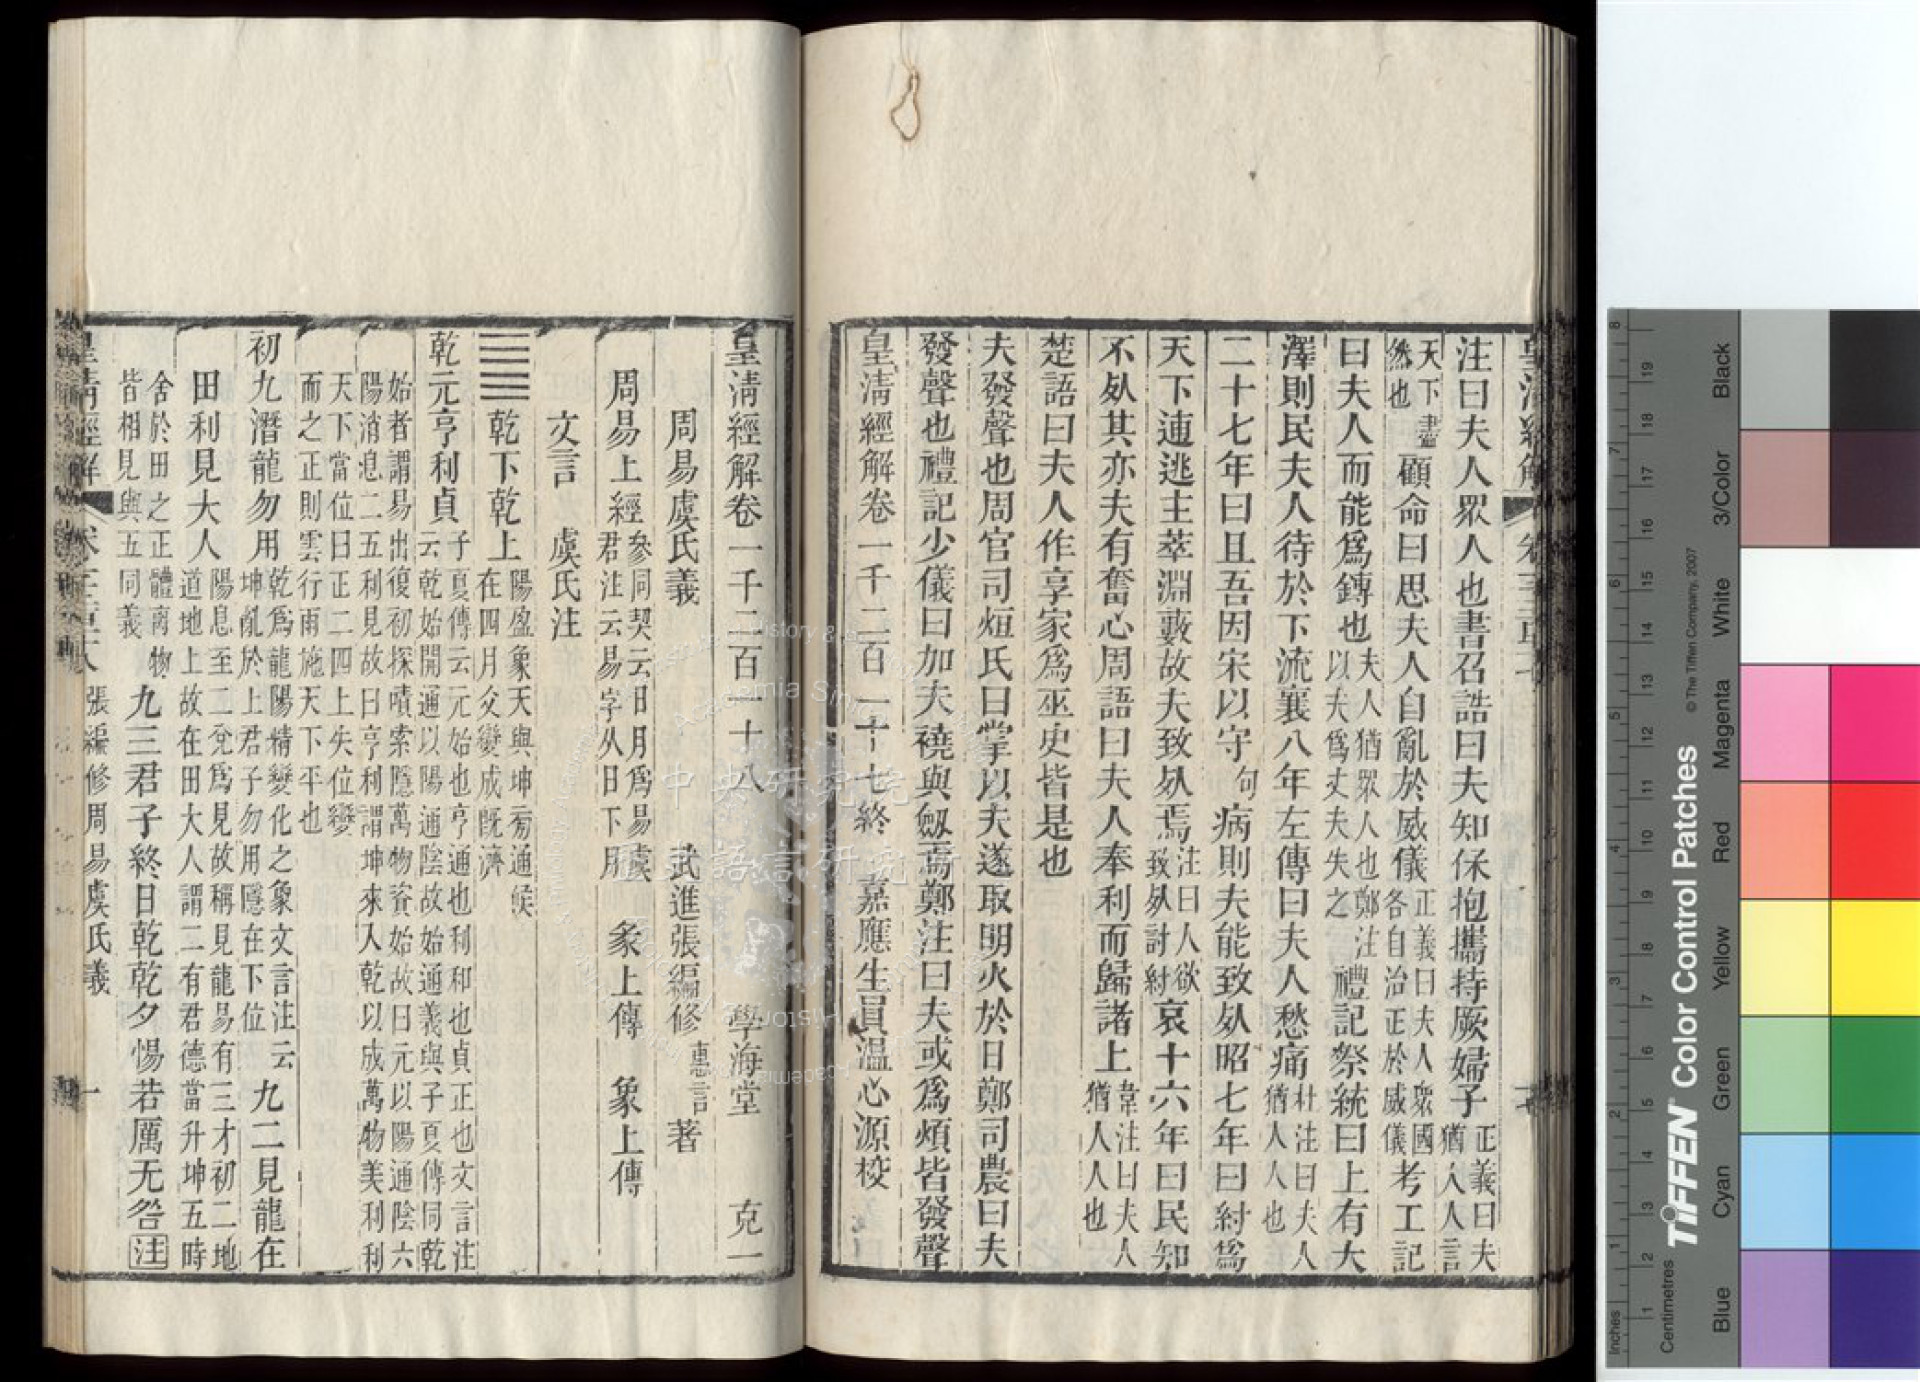 注曰夫人眾人也書召誥曰夫知保抱攜持厥婦子正義曰夫猶人人言
天下盡然也顧命曰思夫人自亂於威儀正義曰夫人眾國各自治正於威儀考工記
曰夫人而能爲鏄也夫人猶眾人也鄭注以夫爲丈夫失之禮記祭統曰上有大
澤則民夫人待於下流襄八年左傳曰夫人愁痛杜注曰夫人猶人人也
二十七年曰且吾因宋以守句病則夫能致死昭七年曰紂爲
天下逋逃主萃淵藪故夫致死焉注曰人欲致死討紂哀十六年曰民知
不死其亦夫有奮心周語曰夫人奉利而歸諸上韋注曰夫人猶人人也
楚語曰夫人作享家爲巫史皆是也
夫發聲也周官司烜氏曰掌以夫遂取明火於日鄭司農曰夫
發聲也禮記少儀曰加夫襓與劒焉鄭注曰夫或爲煩皆發聲
皇淸經解卷一千二百一十七終 嘉應生員溫心源校
皇淸經解卷一千二百一十八 學海堂 克一
周易虞氏義 武進張編修惠言著
周易上經參同契云日月爲易虞君注云易字从日下月 彖上傳 象上傳
文言 虞氏注
乾下乾上陽盈象天與坤旁通候在四月爻變成旣濟
乾元亨利貞子夏傳云元始也亨通也利和也貞正也文言注云乾始開通以陽通陰故始通義與子夏傳同乾
始者謂易出復初探嘖索隱萬物資始故曰元以陽通陰六陽消息二五利見故曰亨利謂坤來入乾以成萬物美利利
天下當位曰正二四上失位變而之正則雲行雨施天下平也
初九潛龍勿用乾爲龍陽精變化之象文言注云坤亂於上君子勿用隱在下位九二見龍在
田利見大人陽息至二兌爲見故稱見龍易有三才初二地道地上故在田大人謂二有君德當升坤五時
舍於田之正體离物皆相見與五同義九三君子終日乾乾夕惕若厲无咎注
皇淸經解 張編修周易虞氏義 一
中央研究院
TIFFEN Color Control Patches
© The Tiffen Company, 2007
Inches
Centimetres
Blue Cyan Green Yellow Red Magenta White 3/Color Black